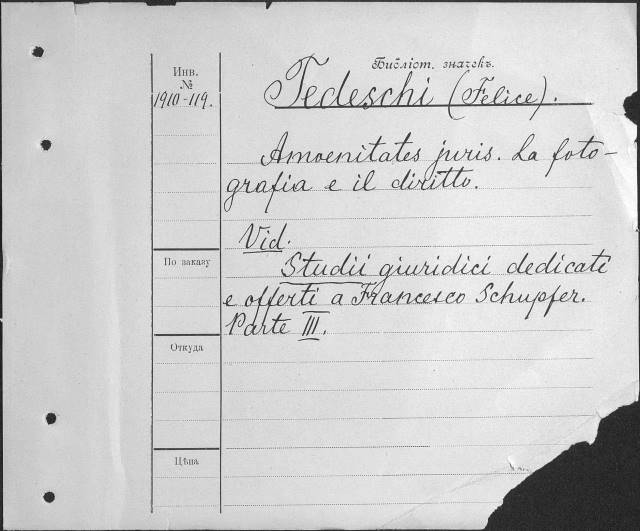 Инв.
№
1910-119.
Библіот. значекъ.
Tedeschi (Felice).
Amoenitates juris. La foto-
grafia e il diritto.
Vid.
Studii giuridici dedicati
e offerti a Francesco Schupfer.
Parte III.
По заказу
Откуда
Цѣна